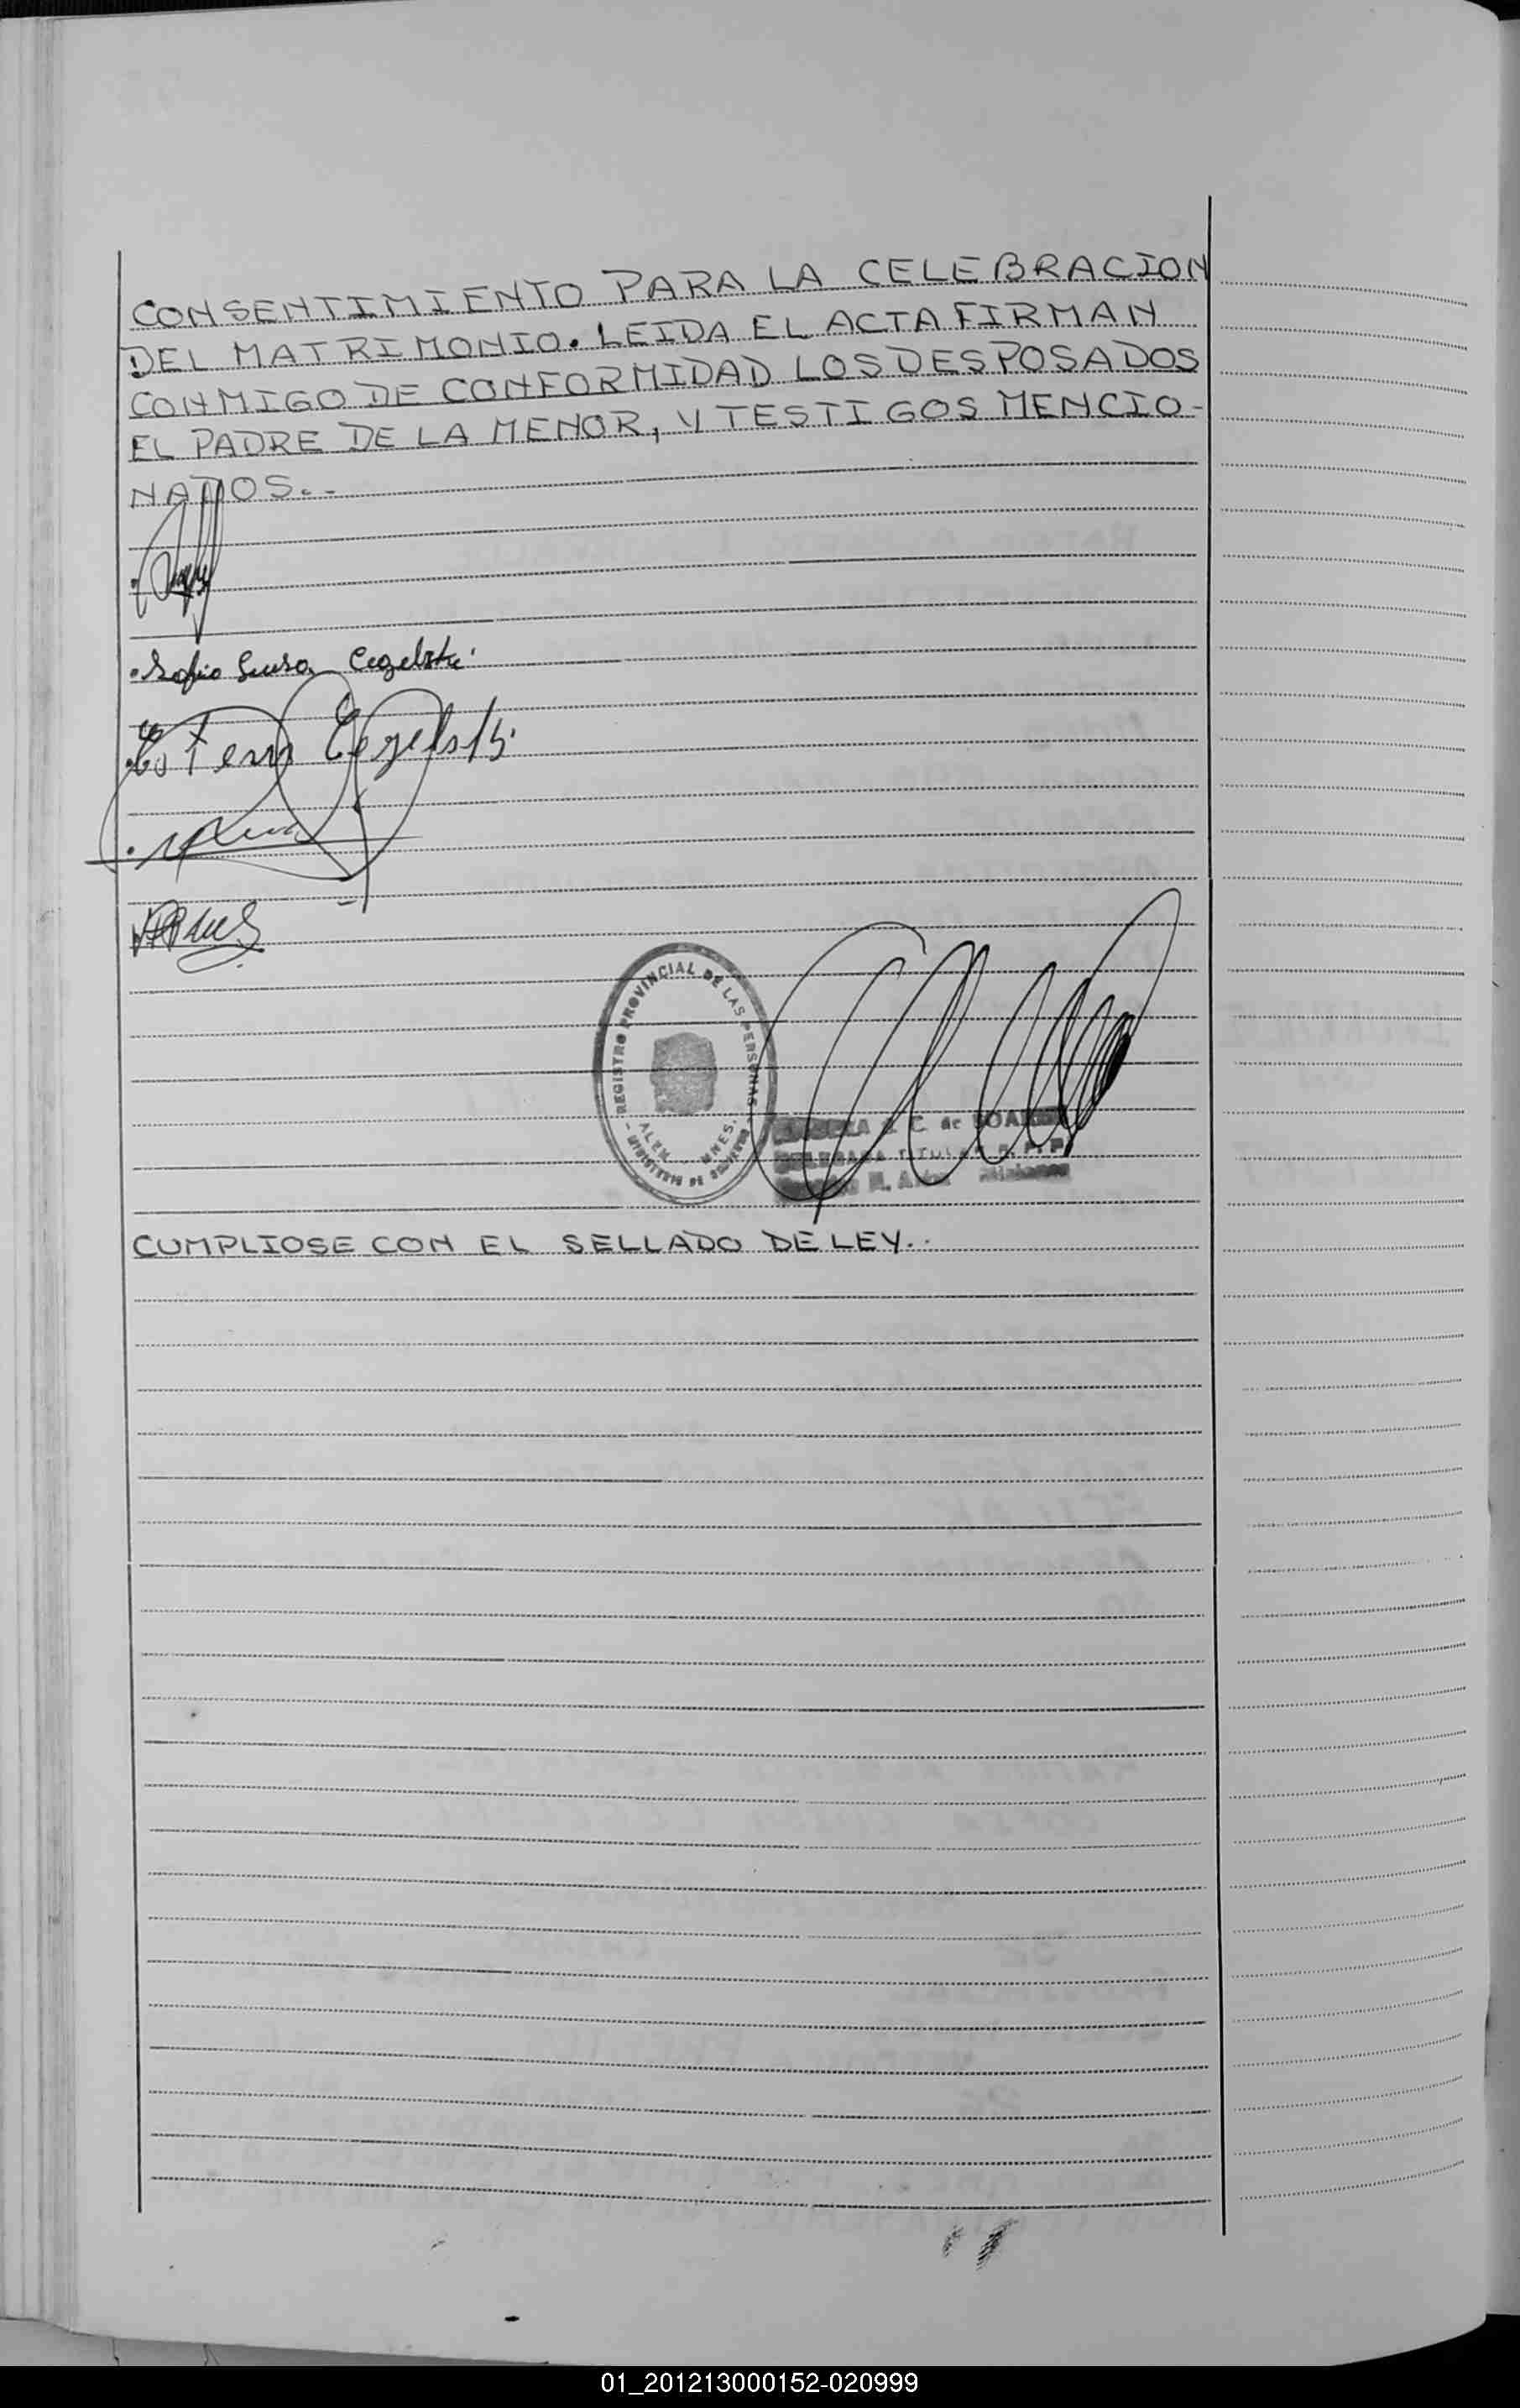 CONSENTIMIENTO PARA LA CELEBRACION
DEL MATRIMONIO. LEIDA EL ACTA FIRMAN
CONMIGO DE CONFORMIDAD LOS DESPOSADOS
EL PADRE DE LA MENOR, Y TESTIGOS MENCIO-
NADOS.-
Sofia Luisa
REGISTRO PROVINCIAL DE LAS PERSONAS
ALEM MNES.
MINISTERIO DE GOBIERNO
C. de
TITULAR
CUMPLIOSE CON EL SELLADO DE LEY..
01_201213000152-020999